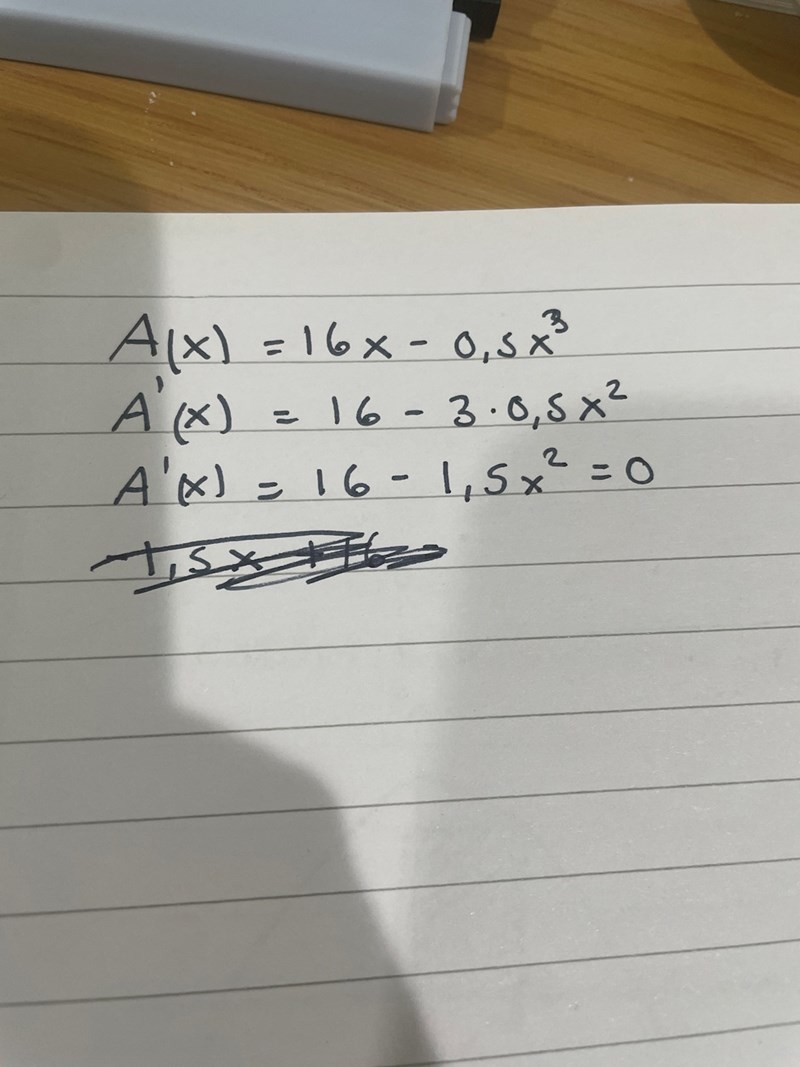 A(x) = 16x - 0,5x³
A'(x) = 16 - 3·0,5x²
A'(x) = 16 - 1,5x² = 0